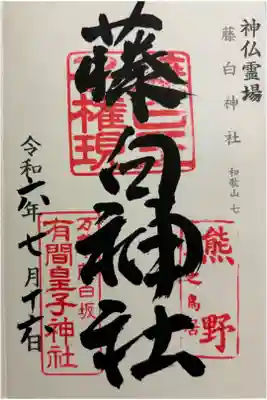 神仏霊場
藤白神社
和歌山 七
藤白神社
権現
熊野
之鳥居
白坂
有間皇子神社
令和六年七月十六日